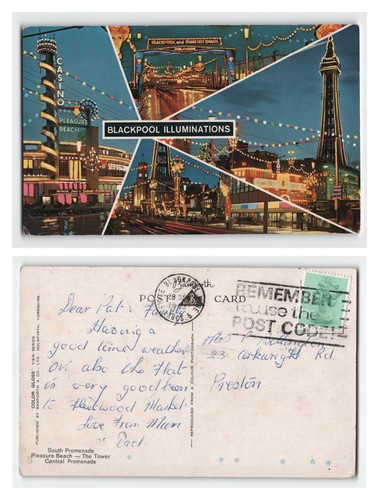 BLACKPOOL and FAIRYLAND
CASINO
PLEASURE
BEACH
BLACKPOOL ILLUMINATIONS
POST CARD
BLACKPOOL
REMEMBER
use the
POST CODE
Dear Pat & Family
Having a
good time weather
O.K. also the Flat
is very good been
to Fleetwood Market.
Love from Mum
" Dad
Rd.
Preston
"COLOR GLOSS" VIEW SERIES
PUBLISHED BY BAMFORTH & CO. LTD. HOLMFIRTH, YORKSHIRE.
REPRODUCED FROM A COLOUR PHOTOGRAPH
South Promenade
Pleasure Beach — The Tower
Central Promenade